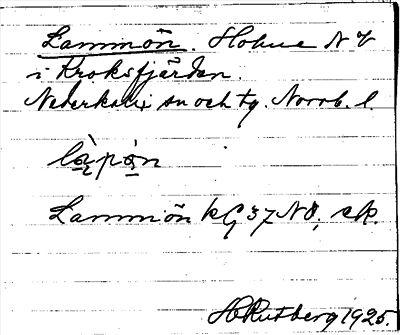 Lammön. Holme N V
i Kroksfjärden.
Nederkalix sn och tg. Norrb. l.
làpòn
Lammön kG 37 NO, ek.
H Rutberg 1925.